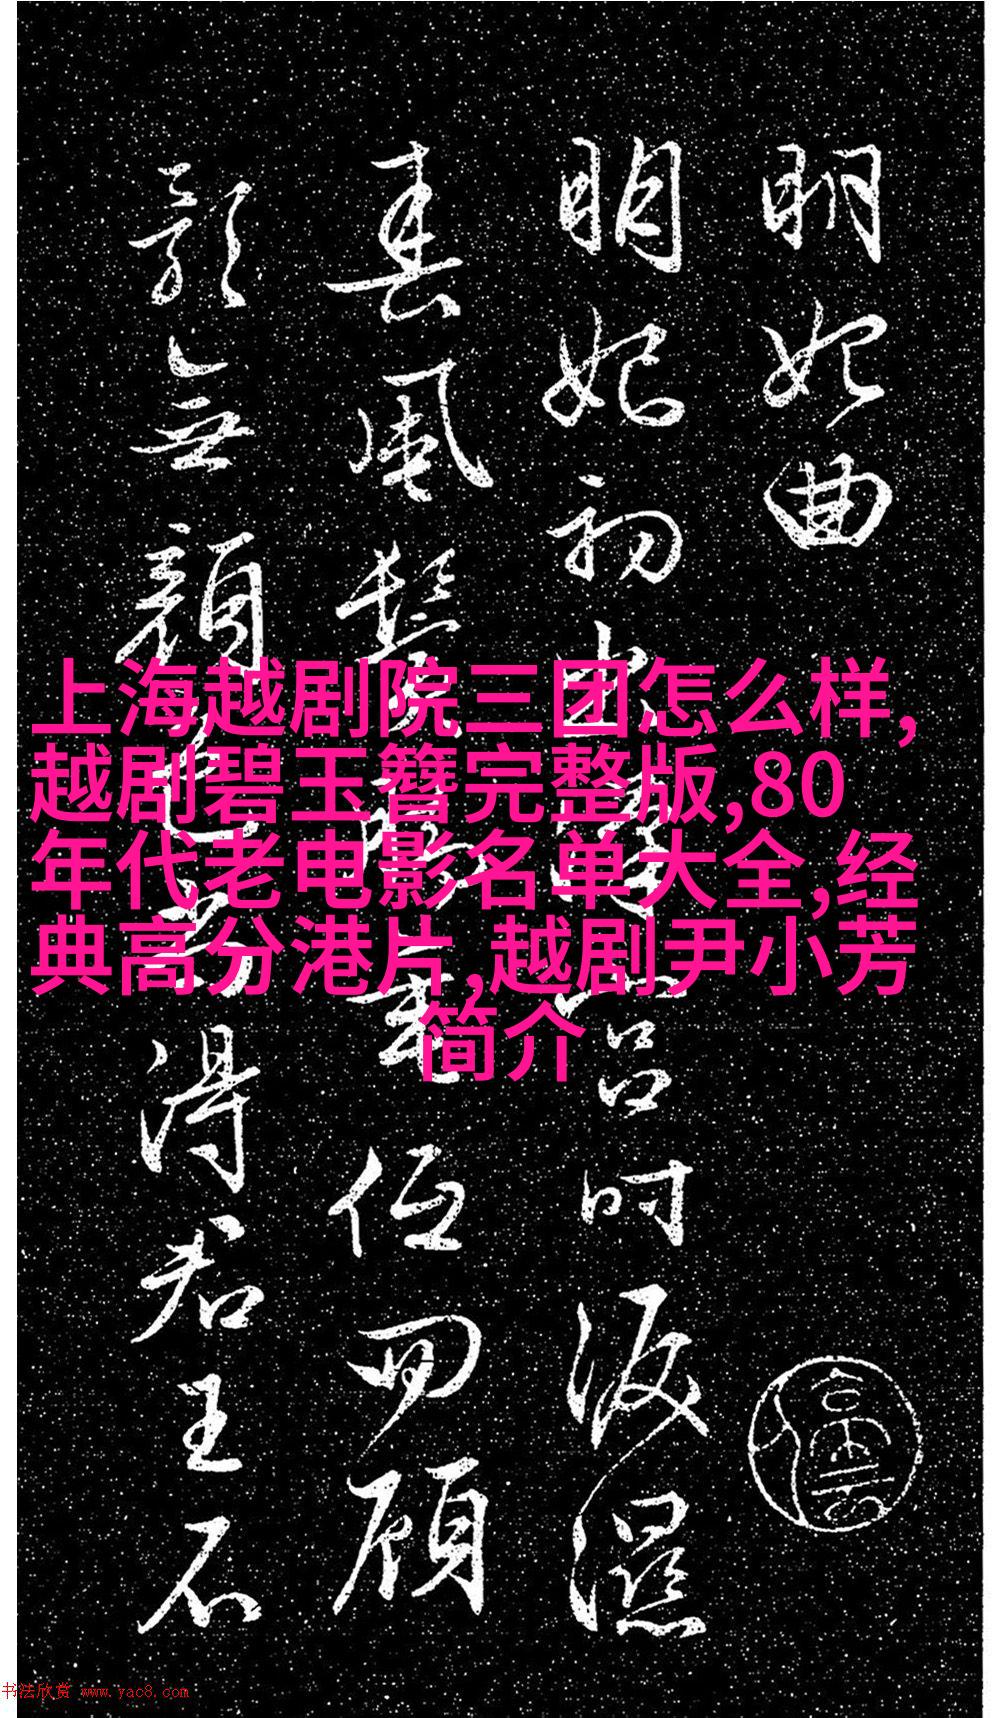 明妃曲
明妃初出漢宫時淚濕
春風鬢脚垂低回顧
影無顔色尚得君王不
上海越剧院三团怎么样,
越剧碧玉簪完整版,80
年代老电影名单大全,经
典高分港片,越剧尹小芳
简介
书法欣赏 www.yac8.com